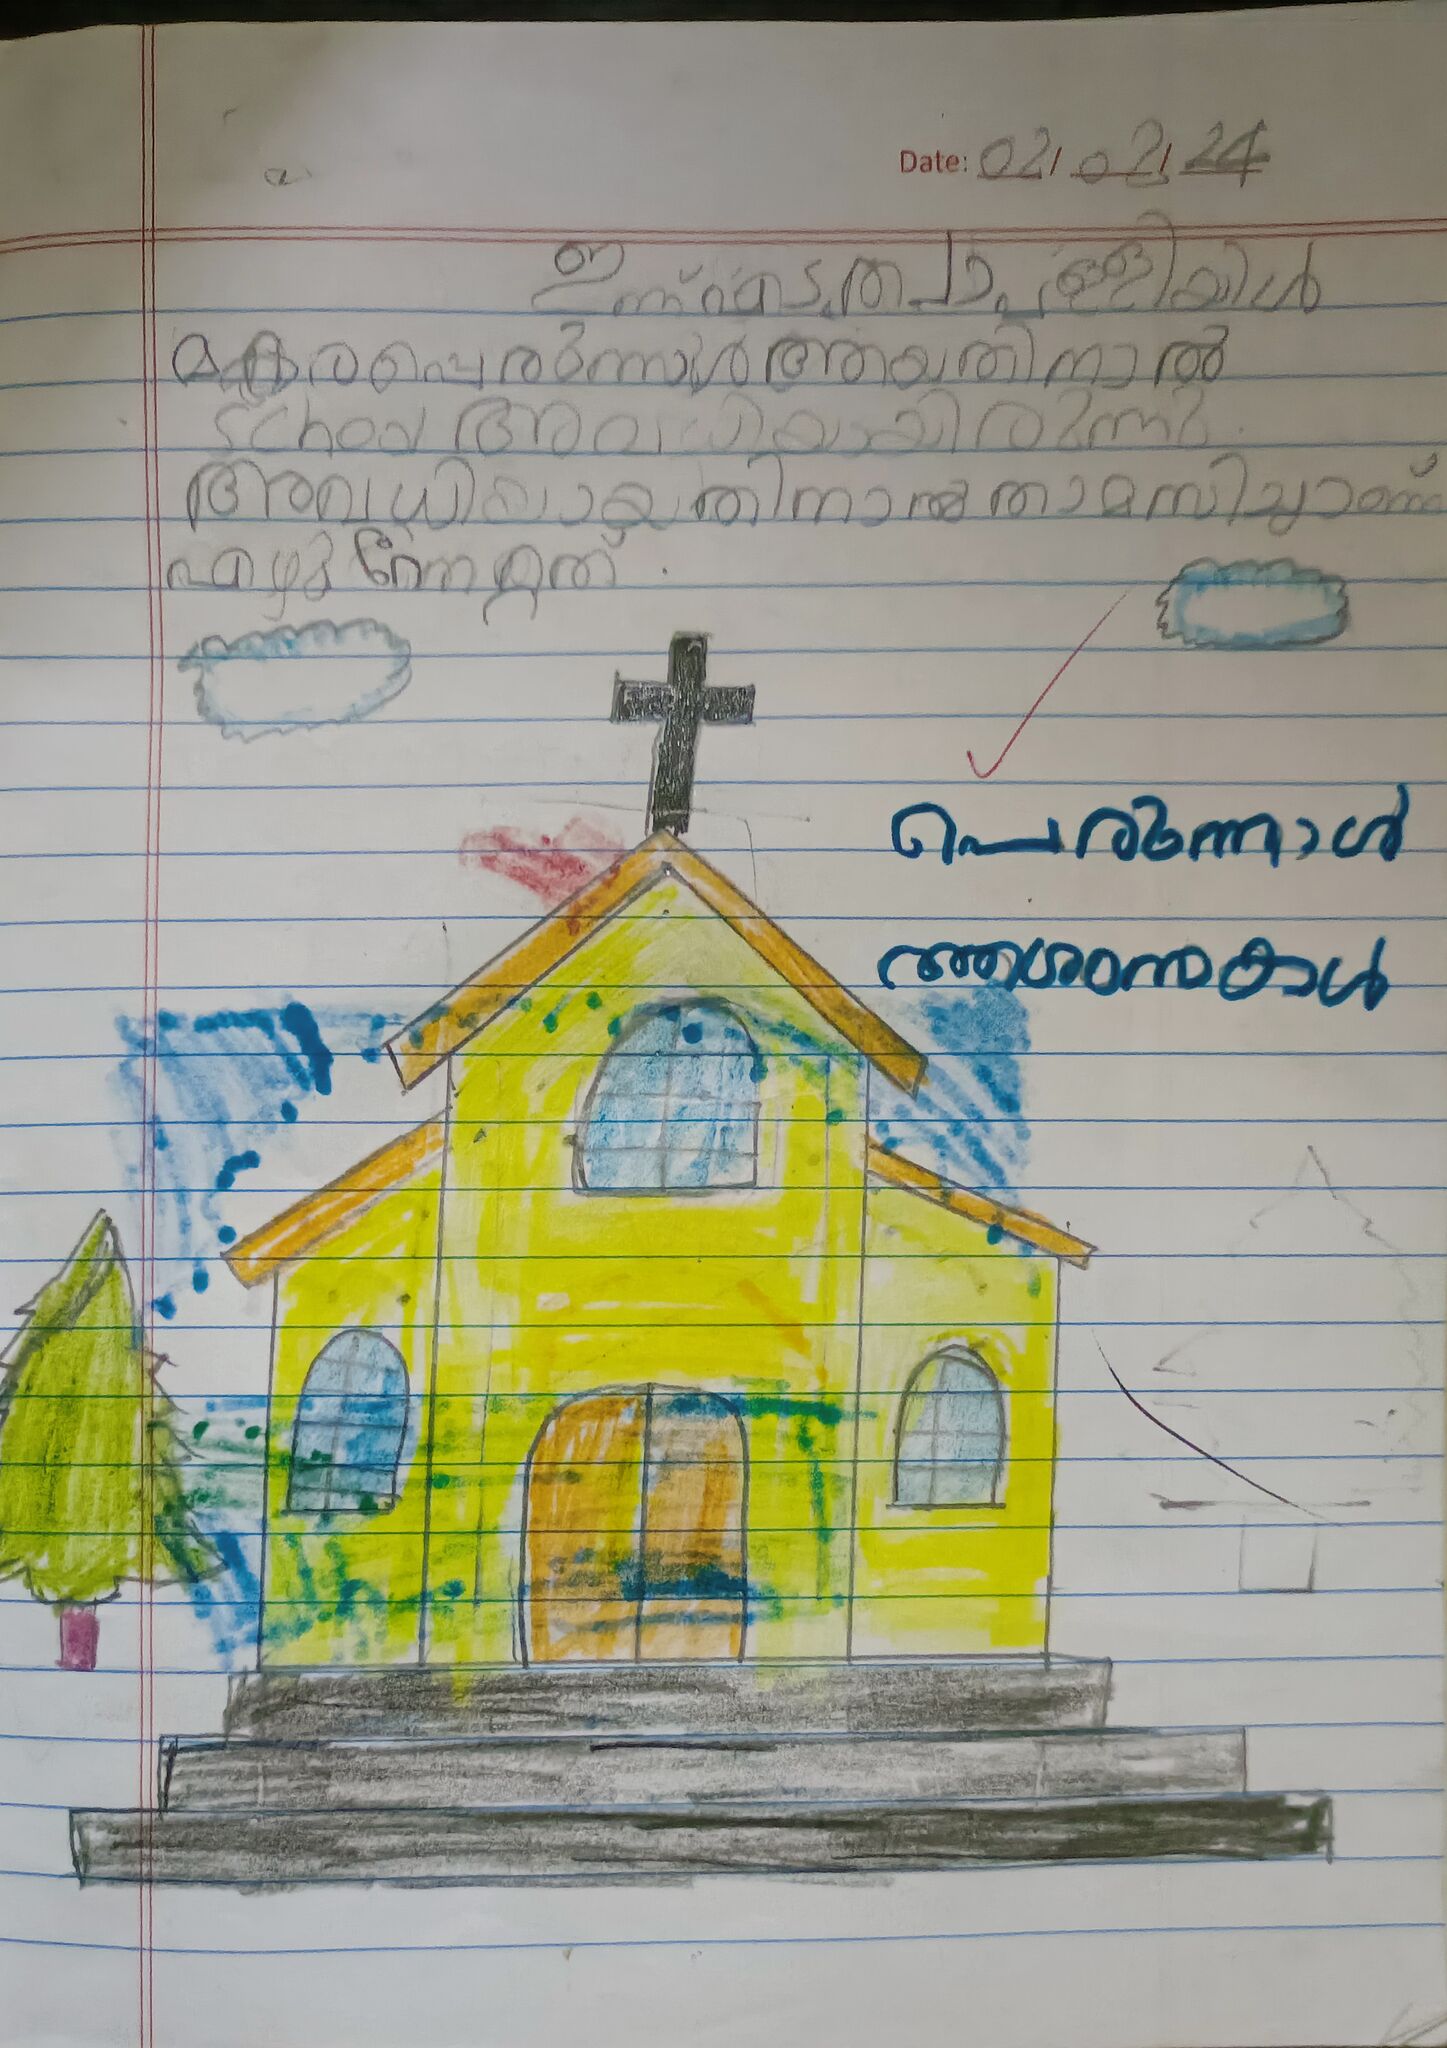 Date: 02/02/24
ഇന്ന് കടുത്ത പള്ളിയിൽ
മകരപെരുന്നാൾ ആയതിനാൽ
school അവധിയായിരുന്നു.
അവധിയായതിനാൽ താമസിച്ചാണ്
എഴുന്നേറ്റത്.
പെരുന്നാൾ
ആശംസകൾ